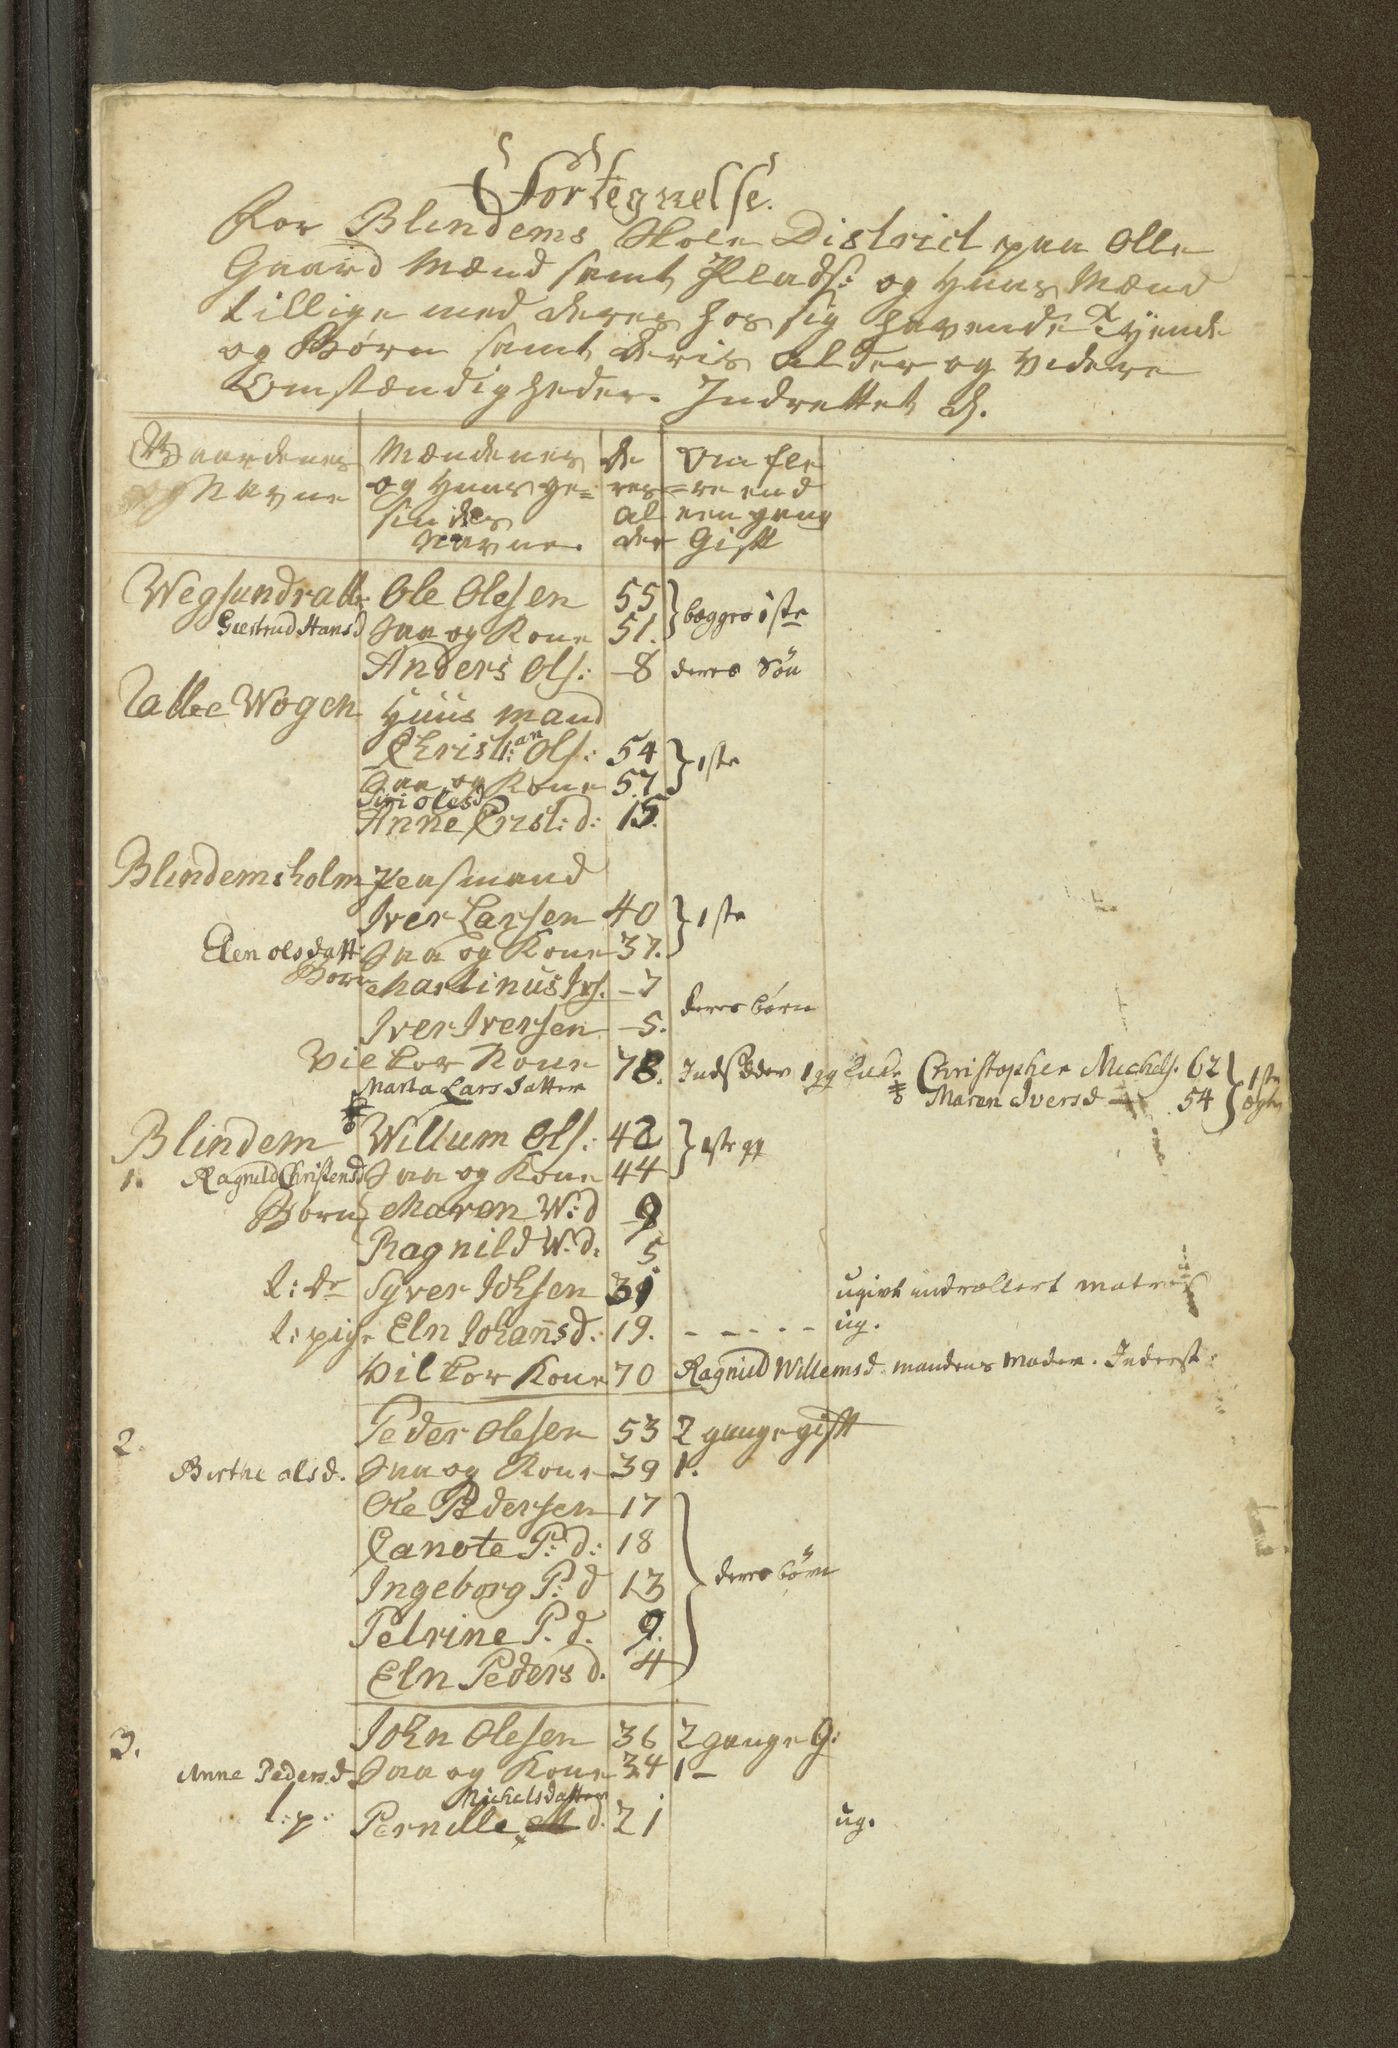 Fortegnelse.
for Blindems Skole District paa Alle
Gaard Mænd samt Plads: og Huus Mænd
tillige med deres hos sig havende Tyende
og Børn samt deris alder og videre
Omstændigheder. Indrettet d.
Gaardenes Mændenes de Om fle
og Navne og Huus ge= res =re end
sindes al een gang
Navne. der Gift
Wegsundralle Ole Olesen 55 begge 1ste
Giertrud Hansd Haa og Kone 51.
Anders Ols: -8 deres Søn
Ralle Wogen Huus mand
Christian Ols: 54 1ste
Haa og Kone 57
Siri Olesd
Anne Crist:d: 15.
Blindemsholm Pensmand
Iver Larsen 40 1ste
Elen olsdatt: Haa og Kone 37.
Børn Martinus Ivs. -7
deres børn
Iver Iversen -5.
Vilkor Kone 78. Indsidder 1 gg Enke Christophen Michels. 62 1ste
Marta Larsdatter Maren Iversd - 54 ægt
Blindem Willum Ols: 42 1ste gg
1. Ragnild Christensd Haa og Kone 44
Børn Maren W:d 9
Ragnild W:d: 5
t: dr Syver Johsen 31 ugivt indrollert matros
t: pige Eln Johansd: 19. - - - - - ug.
Vilkor Kone 70 Ragnild Willemsd mandens moder. Inderst
2. Peder Olesen 53 2 gange gift
Birthe olsd. Haa og Kone 39 1.
Ole Pedersen 17
Canote P:d: 18
Ingeborg P:d 13 deres børn
Petrine P.d. 9.
Eln Peders d. 4
3. John Olesen 36 2 gange G:
Anne Peders.d Haa og Kone 34 1-
Michelsdatter
t:p: Pernille M d. 21 ug.